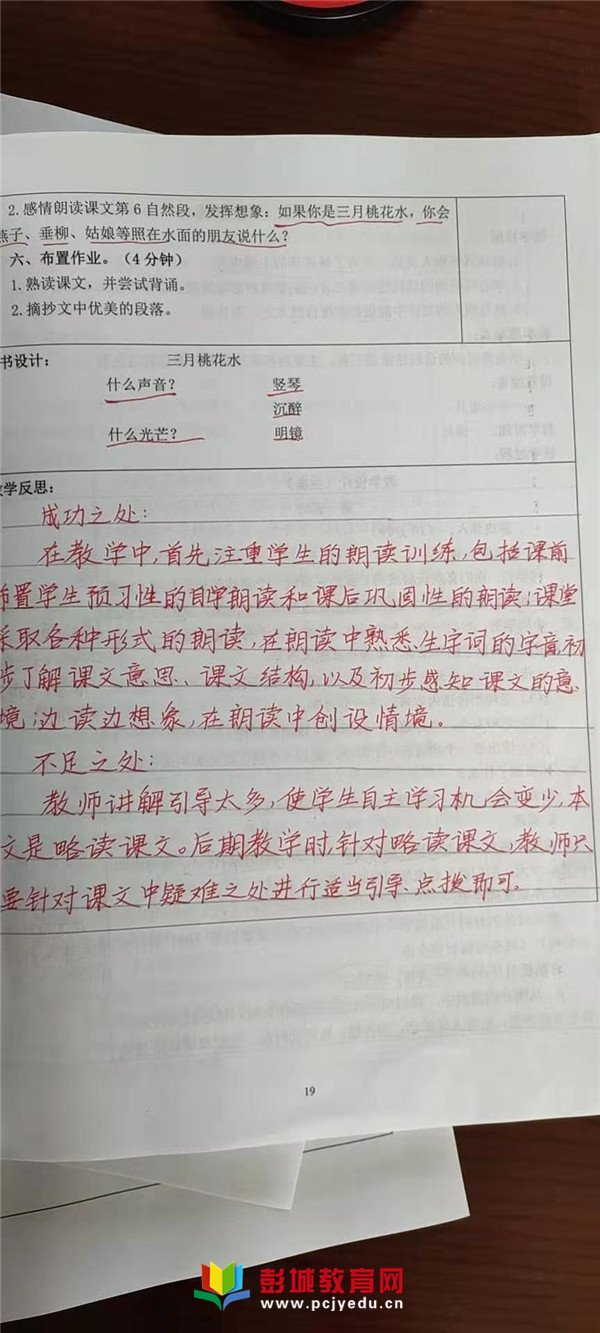 2.感情朗读课文第 6 自然段，发挥想象：如果你是三月桃花水，你会
燕子、垂柳、姑娘等照在水面的朋友说什么？
六、布置作业。（4 分钟）
1.熟读课文，并尝试背诵。
2.摘抄文中优美的段落。
书设计： 三月桃花水
什么声音？ 竖琴
沉醉
什么光芒？ 明镜
教学反思：
成功之处：
在教学中，首先注重学生的朗读训练，包括课前
布置学生预习性的自学朗读和课后巩固性的朗读；课堂
采取各种形式的朗读，在朗读中熟悉生字词的字音，初
步了解课文意思、课文结构，以及初步感知课文的意
境；边读边想象，在朗读中创设情境。
不足之处：
教师讲解引导太多，使学生自主学习机会变少，本
文是略读课文。后期教学时，针对略读课文，教师只
要针对课文中疑难之处进行适当引导、点拨即可。
19
彭城教育网
www.pcjyedu.cn